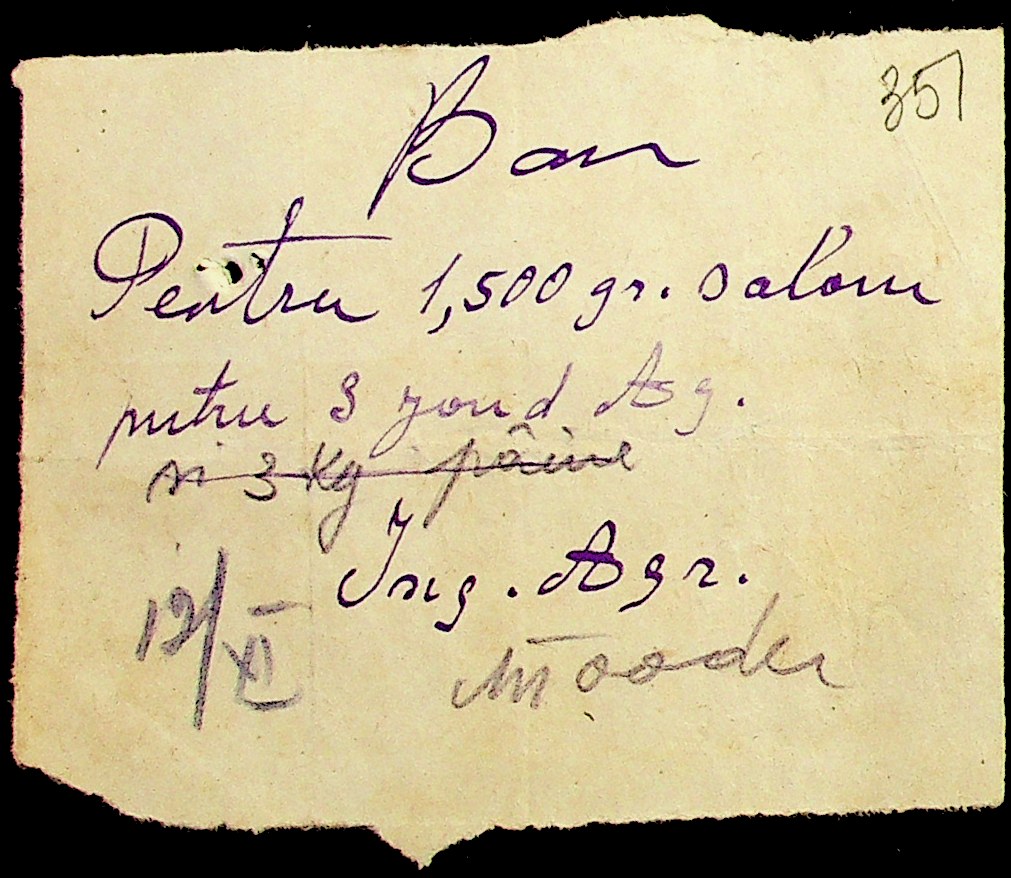 351
Bon
Pentru 1,500 gr. salam
pentru 3 jand Ag.
si 3 Kg pâine
Ing. Agr.
12/XI